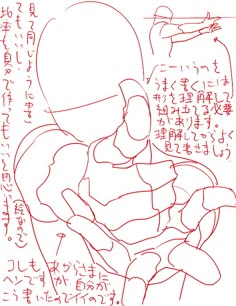 こーいうのを
うまく書くには
形を理解して必要
細かくあります。
理解してからよく
見て書きましょう
見て同じように書い
てもいいし
比率を自分で作ってもいいと思います。
(絵なので
コレも あからさまに
ヘンですが 自分が
こう書いたのでイイのです。